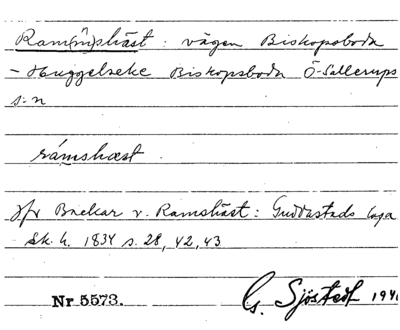 Ram(n)shäst: vägen Biskopsboda
- Huggelseke Biskopsboda Ö-Sallerups
s:n
rámshæst.
Jfr Backar v. Ramshäst: Gudvastads
Sk. h. 1834 s. 28, 42, 43
Nr 5573. G. Sjöstedt 1940